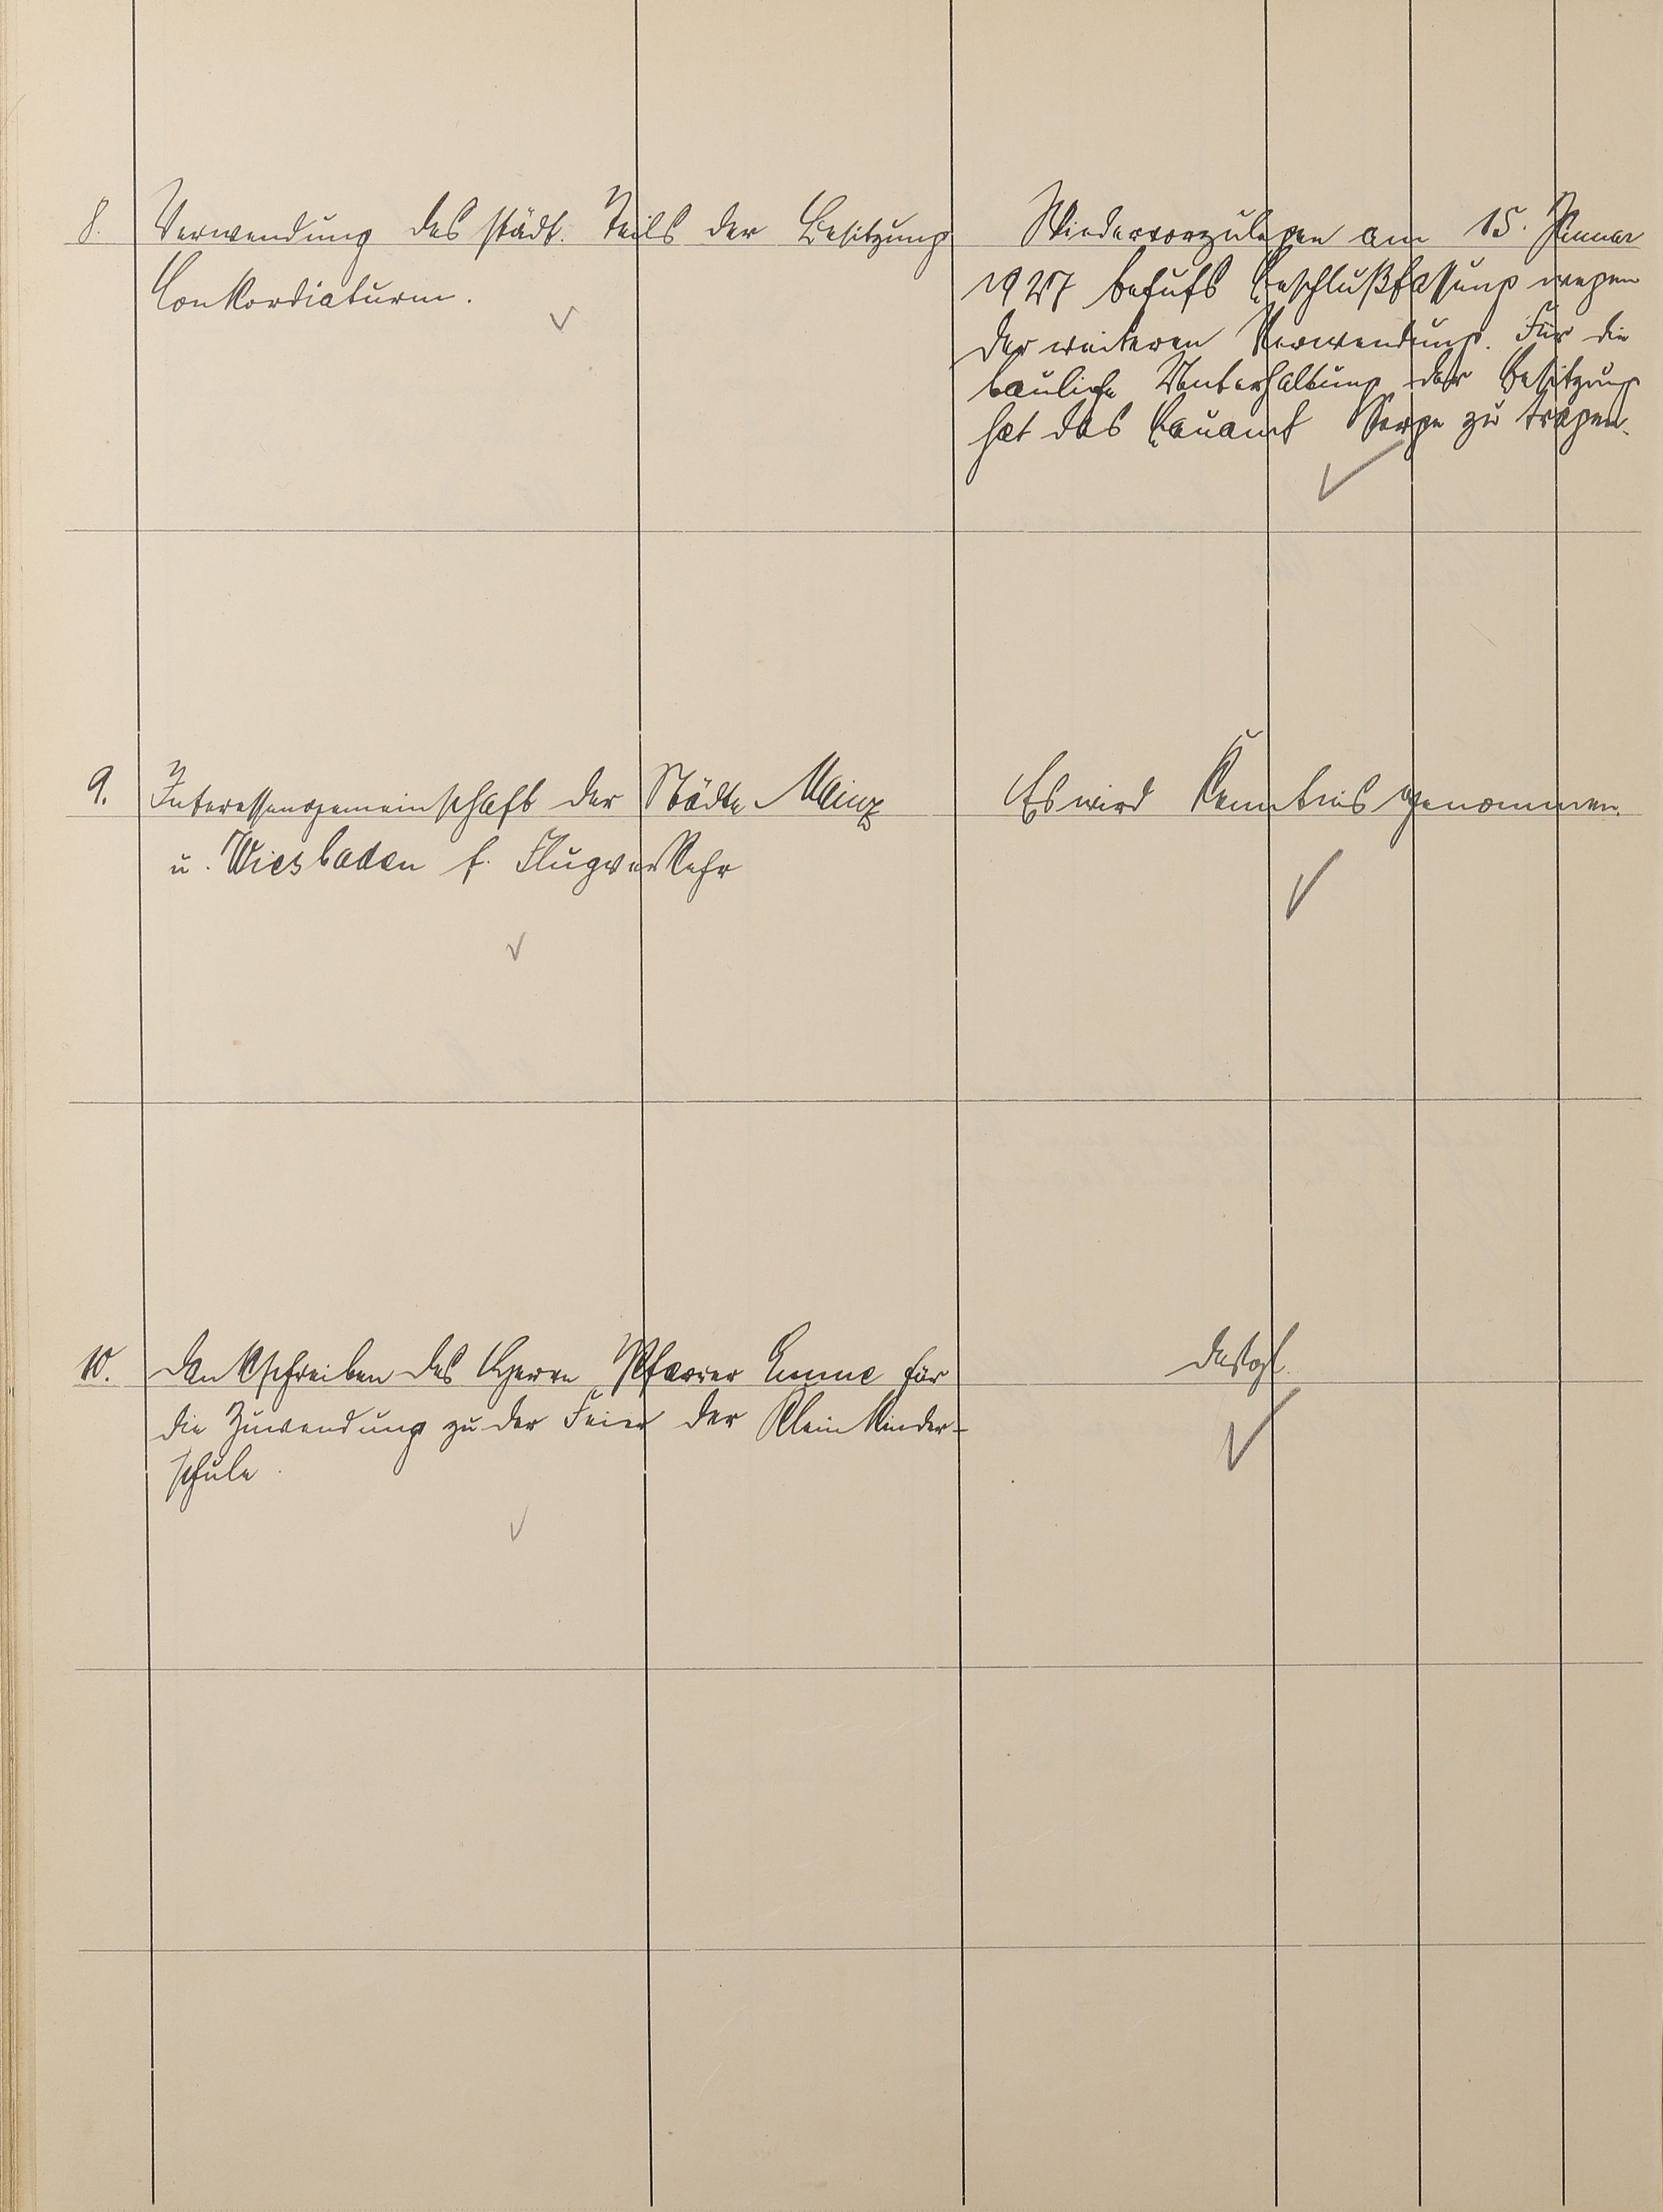 8. Verwendung des städt. Teils der Besitzung
Conkordiaturm.
Wiedervorzulegen am 15. Januar
1927 behufs Beschlußfassung wegen
der weiteren Verwendung. Für die
bauliche Unterhaltung der Besitzung
hat das Bauamt Sorge zu tragen.
9. Interessengemeinschaft der Städte Mainz
u. Wiesbaden f. Flugverkehr
Es wird Kenntnis genommen.
10. Dankschreiben des Herrn Pfarrer Emme für
die Zuwendung zu der Feier der Kleinkinder-
schule.
desgl.